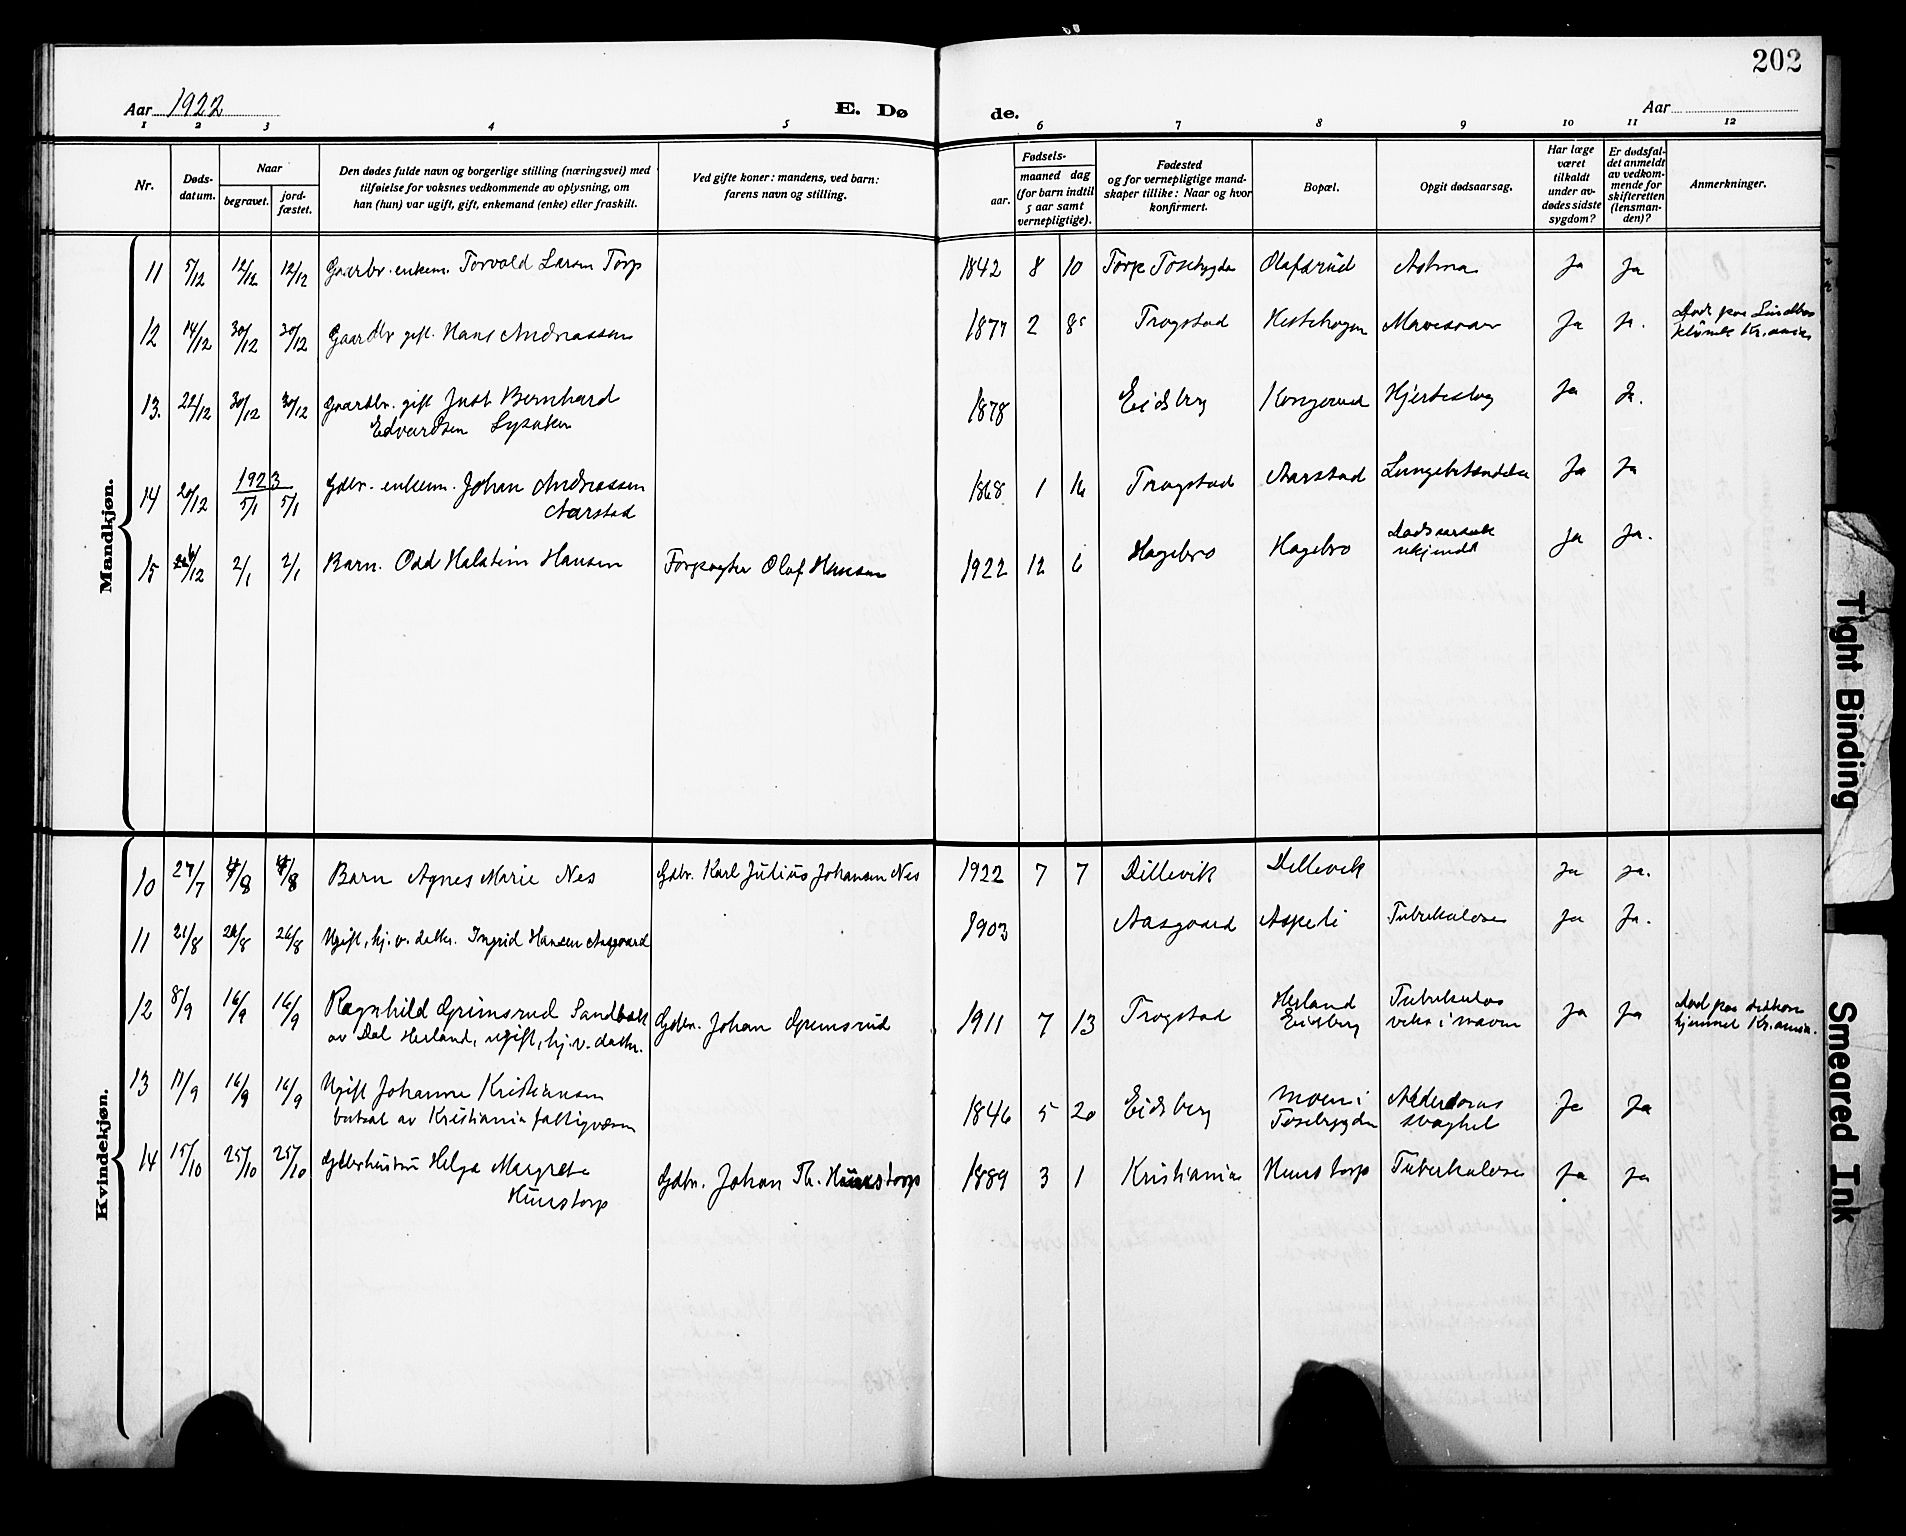 202
Aar 1922
E. Dø
de.
Aar
1 2 3 4 5 6 7 8 9 10 11 12
Nr.
Døds-
datum.
Naar
begravet.
jord-
fæstet.
Den dødes fulde navn og borgerlige stilling (næringsvei) med
tilføielse for voksnes vedkommende av oplysning, om
han (hun) var ugift, gift, enkemand (enke) eller fraskilt.
Ved gifte koner: mandens, ved barn:
farens navn og stilling.
Fødsels-
aar.
maaned dag
(for barn indtil
5 aar samt
vernepligtige).
Fødested
og for vernepligtige mand-
skaper tillike: Naar og hvor
konfirmert.
Bopæl.
Opgit dødsaarsag.
Har læge
været
tilkaldt
under av-
dødes sidste
sygdom?
Er dødsfal-
det anmeldt
av vedkom-
mende for
skifteretten
(lensman-
den)?
Anmerkninger.
Mandkjøn.
11 5/12 12/12 12/12 Gaardbr. enkem. Torvald Larsen Torp 1842 8 10 Torp Tosebygda Olafsrud Astma Ja Ja
12 14/12 30/12 30/12 Gaardbr gift. Hans Andreassen 1877 2 Trøgstad Hestehagen Mavesaar Ja Ja.
Død paa
klinik Kr.ania
13. 22/12 30/12 30/12 Gaardbr. gift Just Bernhard
Edvardsen
1878 Eidsberg Kongerud Hjerteslag Ja Ja.
14 20/12 1923
5/1 5/1 Gdbr. enkem. Johan Andreassen
Aarstad
1868 1 16 Trøgstad Aarstad Lungebetændelse Ja Ja
15 /12 2/1 2/1 Barn. Odd Halstein Hansen Forpagter Olaf Hansen 1922 12 6 Hagebro Hagebro Dødsaarsak
ukjendt Ja Ja.
Kvindekjøn.
10 27/7 4/8 4/8 Barn Agnes Marie Nes Gdbr. Karl Julius Johansen Nes 1922 7 7 Dillevik Dillevik Ja Ja.
11 21/8 26/8 26/8 Ugift, hj. v. datter. Ingrid Hansen Aasgaard 1903 Aasgaard Aspeli Tuberkulose Ja Ja.
12 8/9 16/9 16/9 Ragnhild Grimsrud Sandbæk
av Dal Herland, ugift, hj. v. datter.
Gdbr. Johan Grimsrud 1911 7 13 Trøgstad Herland
Eidsberg
Tuberkuløs
i maven Ja Ja
Død paa
hjemmet Kr.ania.
13 11/9 16/9 16/9 Ugift Johanne Kristiansen
bortsat av Kristiania fattigvæsen
1846 5 20 Eidsberg Moen i
Tosebygden
Alderdoms
svaghet Ja Ja
14 15/10 25/10 25/10 Gdbrhustru Helga Margrete
Huustorp
Gdbr. Johan Th. Huustorp 1889 3 1 Kristiania Huustorp Tuberkulose Ja Ja
Tight Binding
Smeared Ink